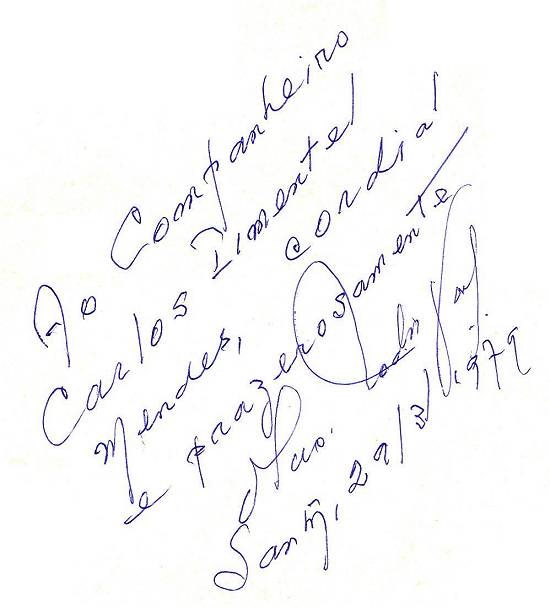 Ao Companheiro
Carlos Pimentel
Mendes, cordial
e prazerosamente
Sant., 29/3/1979